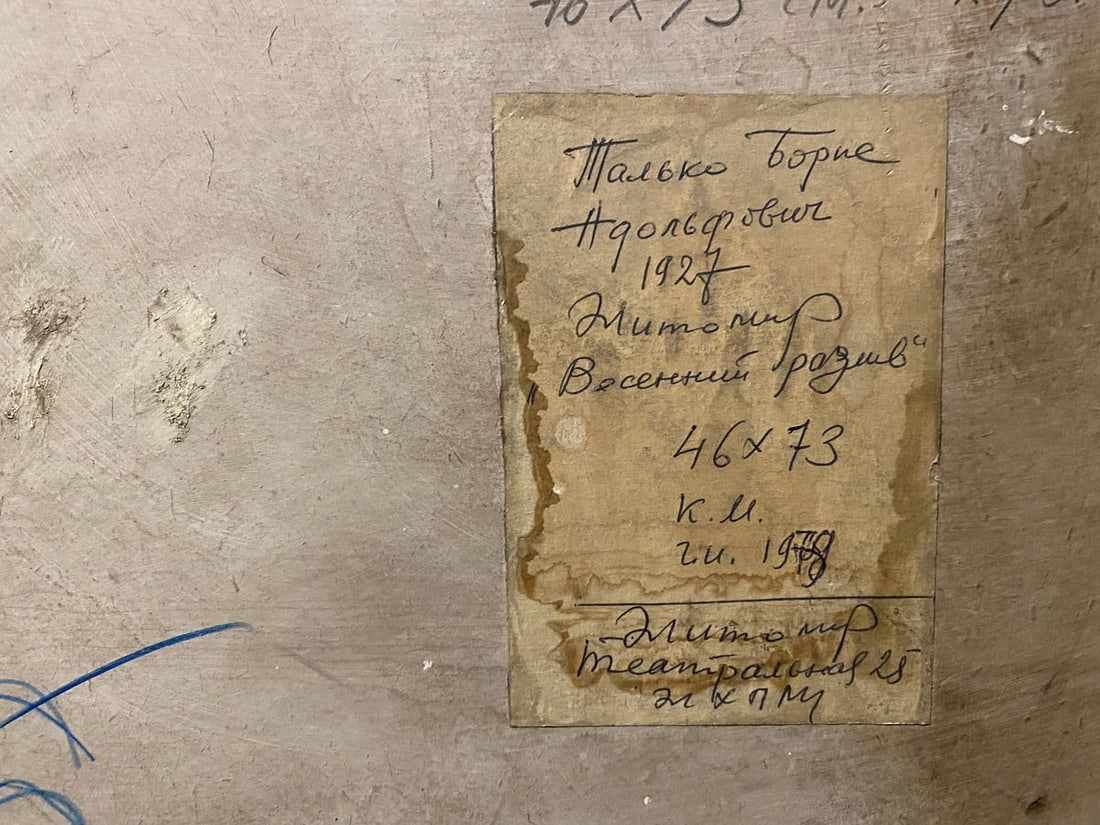 Талько Борис
Адольфович
1927
Житомир
„Весенний разлив“
46 х 73
к.м.
г.и.
Житомир
Театральная 25